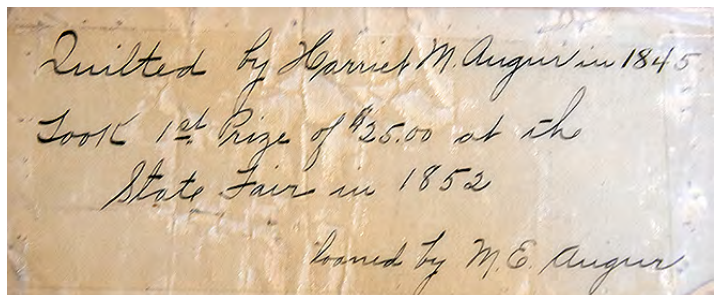 Quilted by Harriet M. Augur in 1845
Took 1st Prize of $25.00 at the
State Fair in 1852
loaned by M. E. Augur